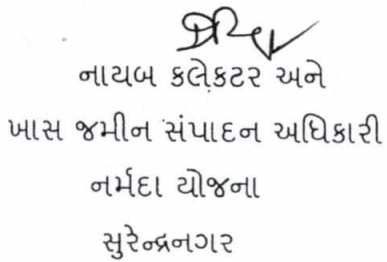 નાયબ કલેકટર અને
ખાસ જમીન સંપાદન અધિકારી
નર્મદા યોજના
સુરેન્દ્રનગર